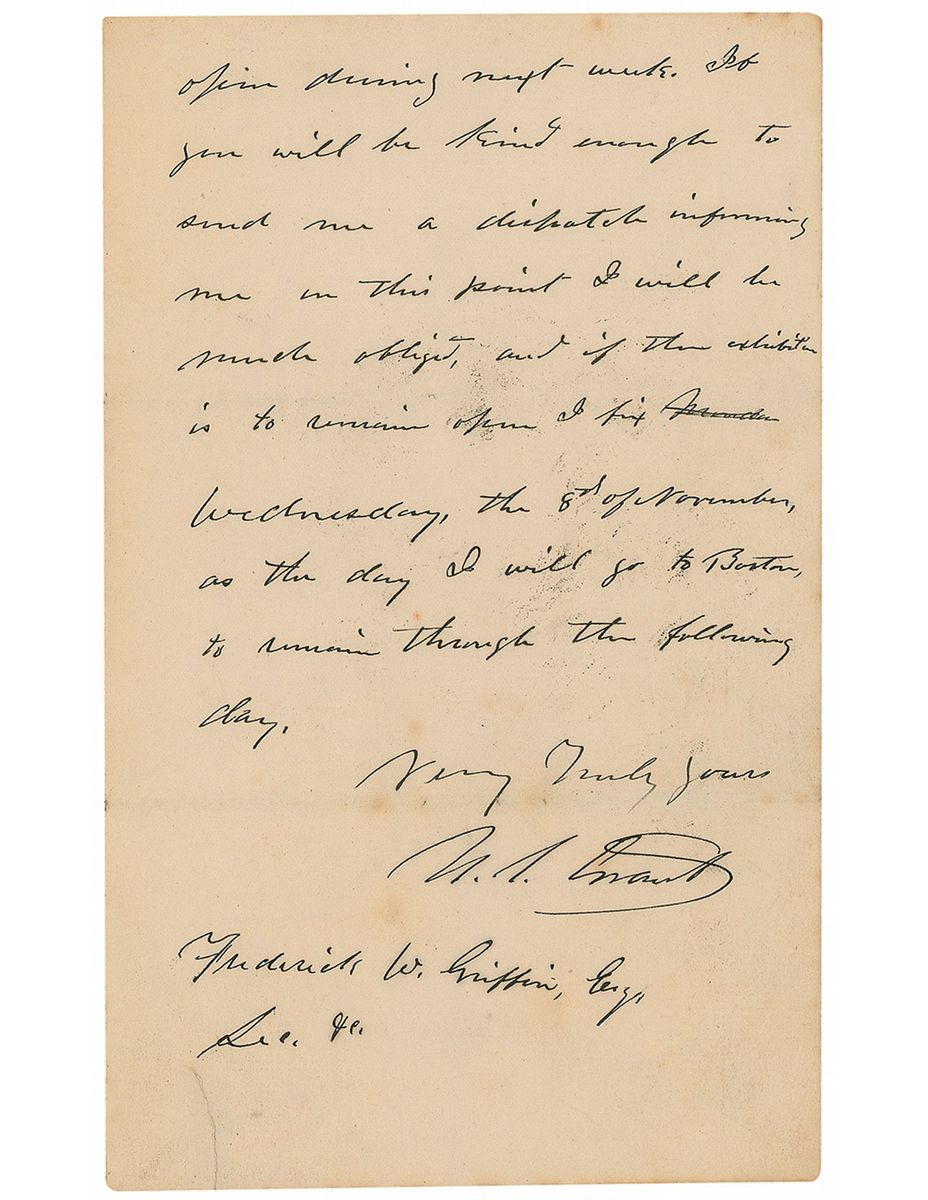 open during next week. If
you will be kind enough to
send me a dispatch informing
me on this point I will be
much obliged, and if the exhibition
is to remain open I fix
Wednesday, the 8th of November,
as the day I will go to Boston,
to remain through the following
day.
Very Truly yours
U. S. Grant
Frederick W. Griffin, Esq.
Sec. &c.